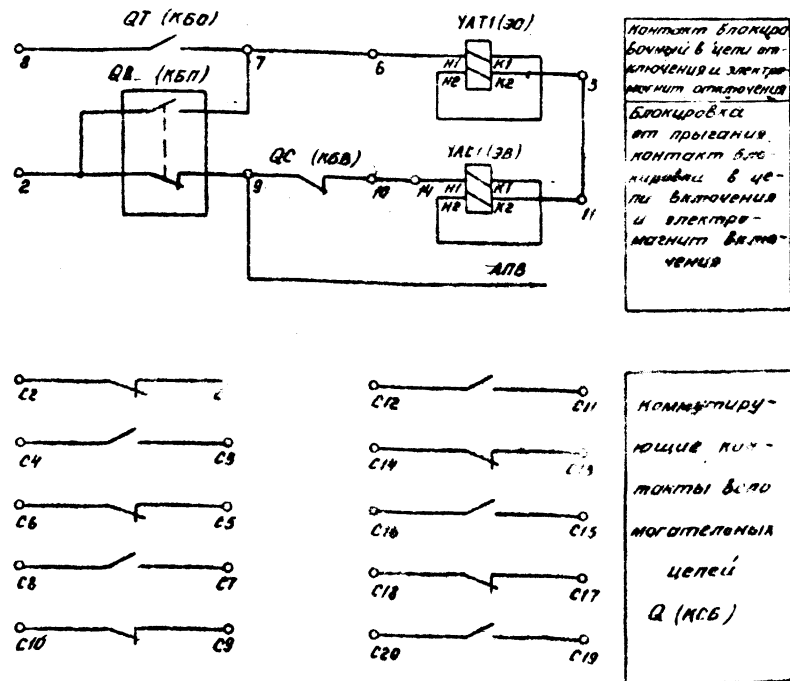 QT (КБО)
YAT1(ЭО)
8
7
6
Н1
К1
Н2
К2
QB (КБП)
2
9
QC (КБВ)
10
14
YAC1(ЭВ)
Н1
К1
Н2
К2
11
АПВ
Контакт блокиро
вочный в цепи от-
ключения и электро-
магнит отключения
Блокировка
от прыгания
контакт бло-
кировки в це-
пи включения
и электро-
магнит вклю-
чения
С2
С12
С11
С4
С3
С14
С13
С6
С5
С16
С15
С8
С7
С18
С17
С10
С9
С20
С19
Коммутиру-
ющие кон-
такты вспо
могательных
цепей
Q (КСБ)